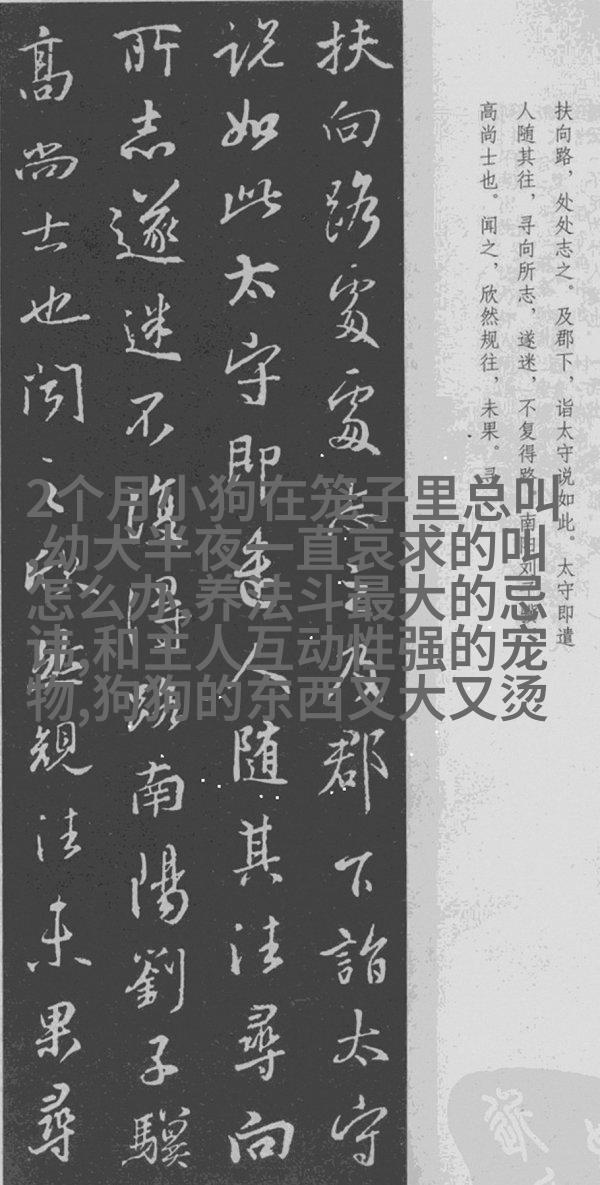 扶向路，处处志之。及郡下，诣太守说如此。太守即遣
人随其往，寻向所志，遂迷，不复得路南阳刘
高尚士也。闻之，欣然规往，未果。寻
扶向路處處志之及郡下詣太守
説如此太守即遣人随其往尋向
所志遂迷不復得路南陽劉子驥
高尚士也闻之欣然規往未果尋
2个月小狗在笼子里总叫
,幼犬半夜一直哀求的叫
怎么办,养法斗最大的忌
讳,和主人互动性强的宠
物,狗狗的东西又大又烫